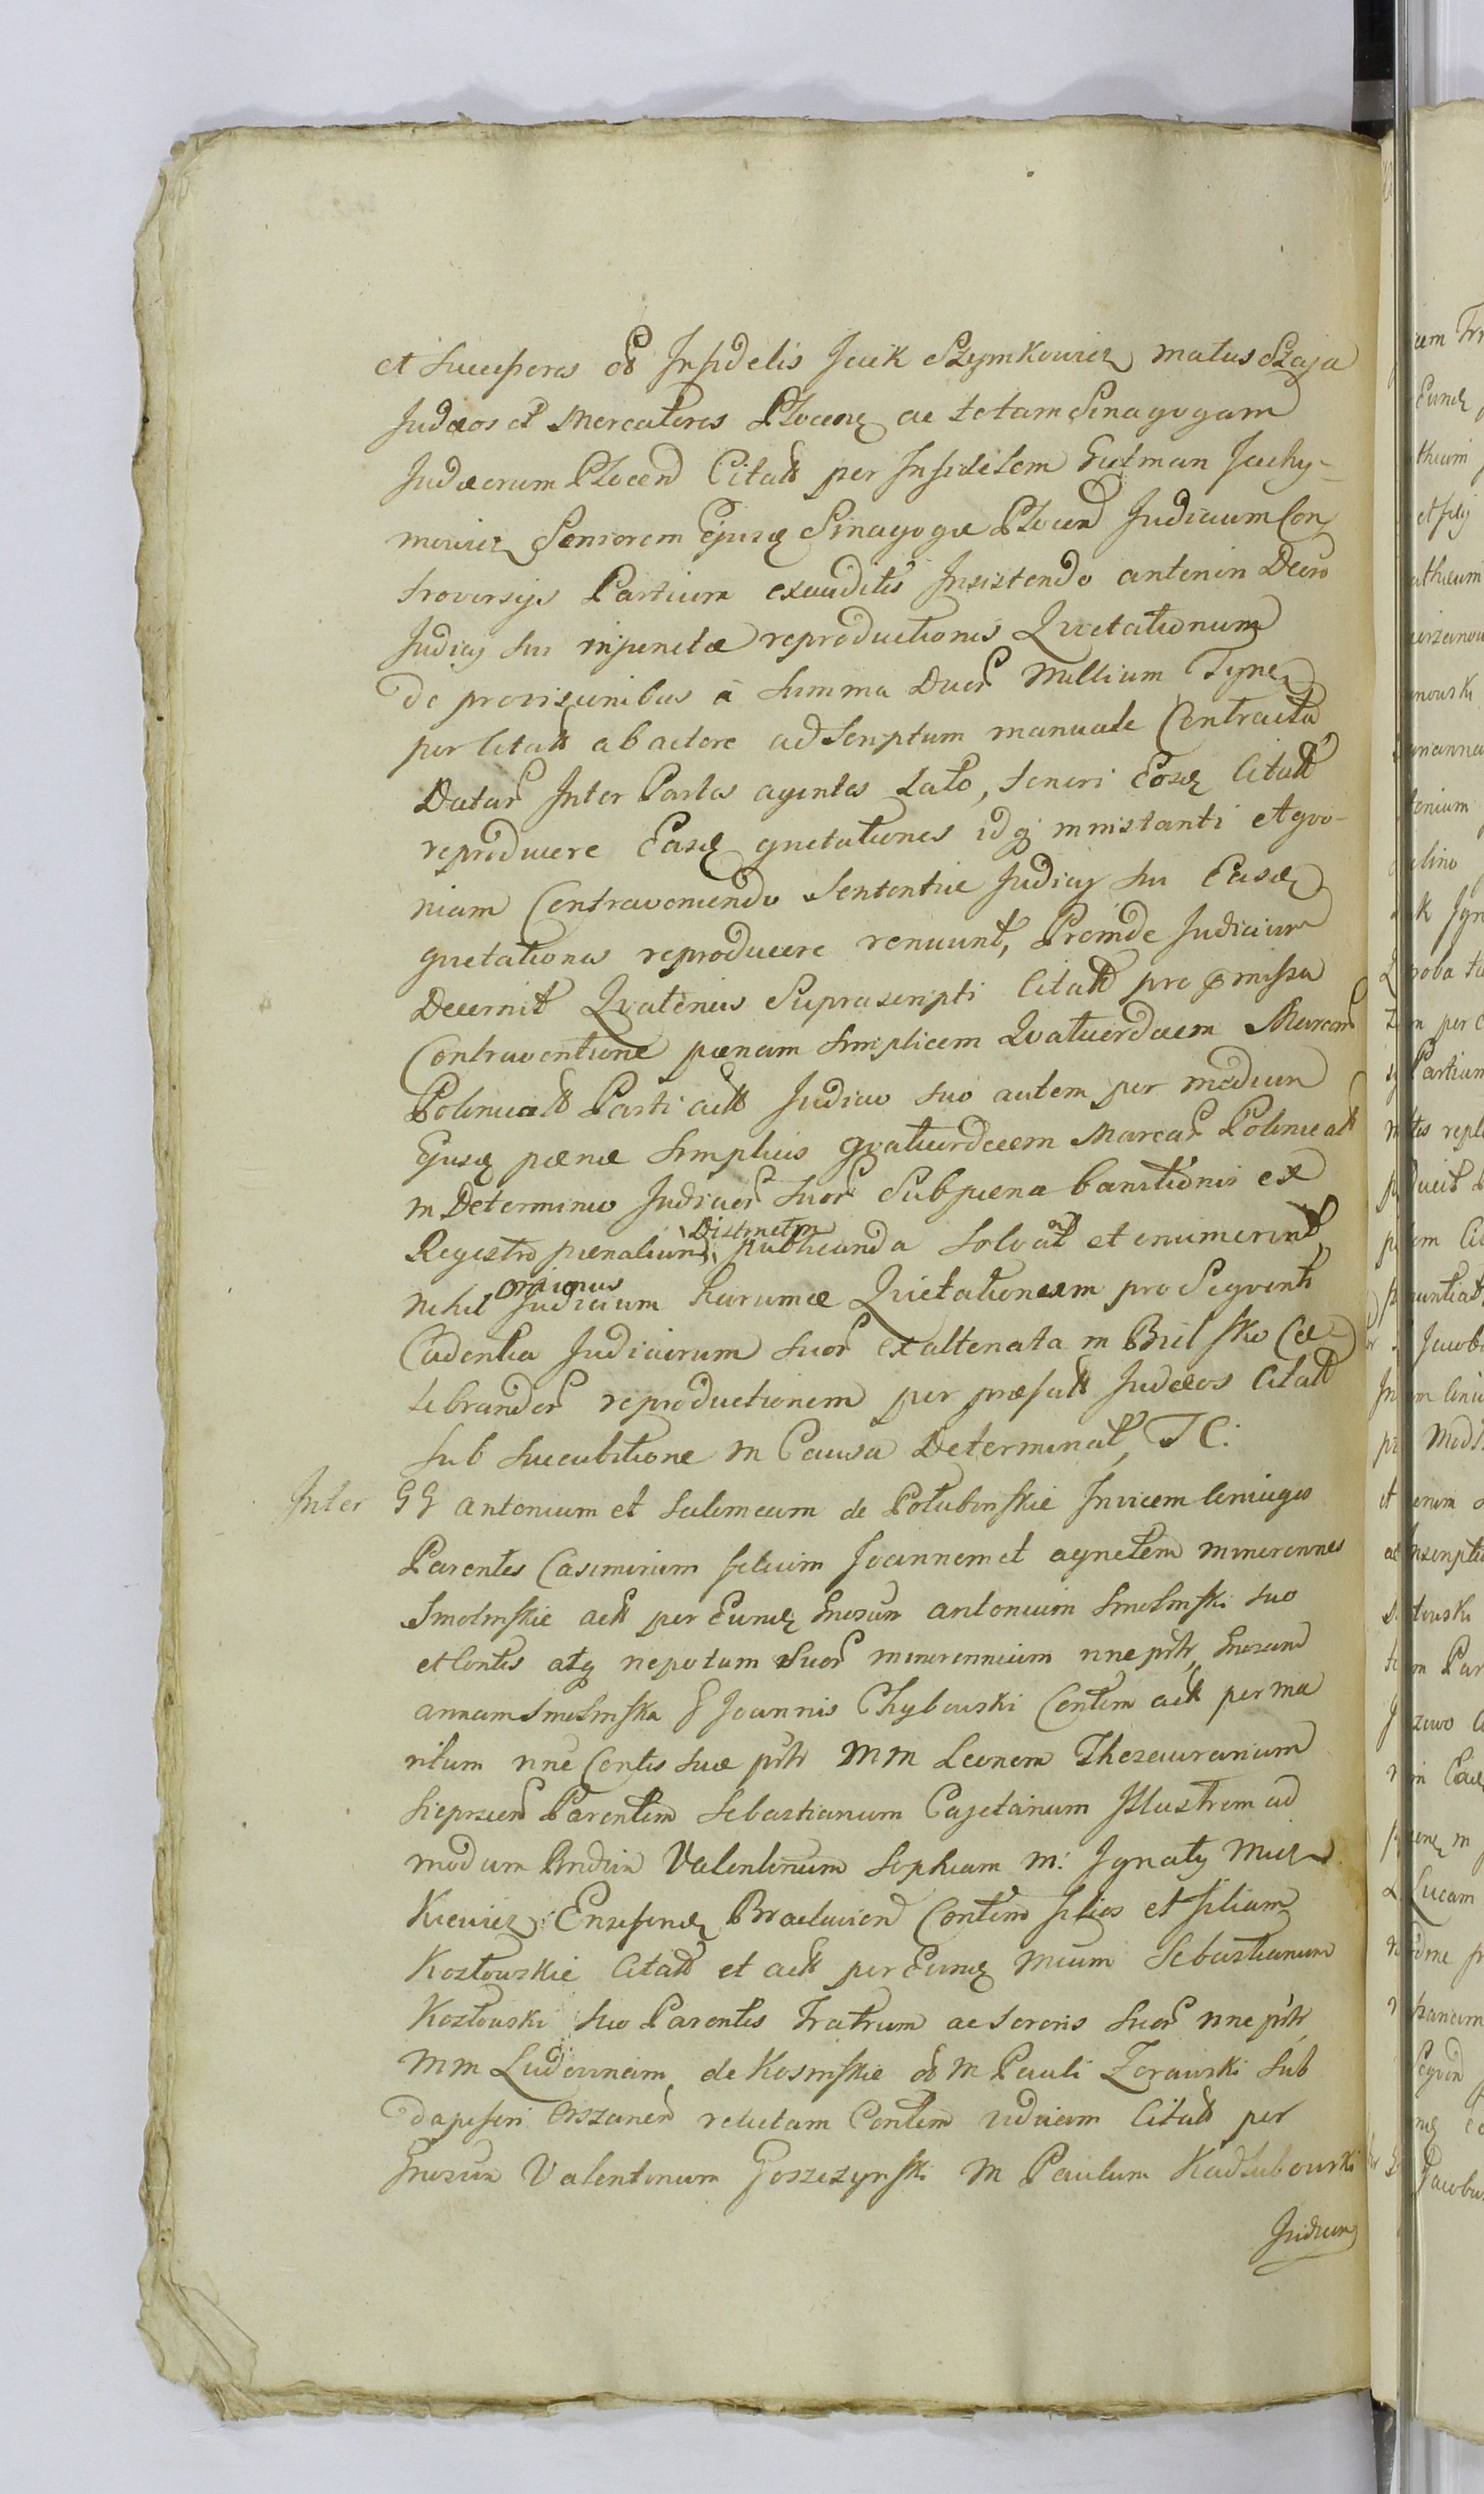 et Successores od Infidelis Jcuk Szymkowicz matus Szaja
Judæos et Mercatores Plocens ac totam Sinagogam
Judæorum Plocen Citatt per Infidelem Gutman Jachy-
mowicz Seniorem Ejusd Sinagogæ Plocen Judicium Con
troversijs Partium exauditis Insistendo anteriri Decro
Judicij sui injunctæ reproductionis Qvietationum
de provisionibus à summa Duor Millium Tynf
per Citatt ab actore ad Scriptum manuale Contracta
Datar Inter Partes agentes Lato, teneri Eosd Citatt
reproducere Easd qvietationes idq ininstanti et qvo-
niam Contraveniendo Sententiæ Judicij sui Easd
qvietationes reproducere renuunt, Proinde Judicium
Decernit Qvatenus Suprascripti Citatt pro præmissa
Contraventione pœnam simplicem Qvatuordecem Marcar
Polonicatt Parti actt Judicio suo autem per modum
Ejusd pœnæ simplicis qvatuordecem Marcar Polonicatt
in Determinio Judicior suor Sub pœna banitionis ex
Registro pœnalium Distinctim publicanda solvat et enumerent,
nihil ominus Judicium harumce Qvietationem pro Seqventi
Cadentia Judiciorum suor ex altenata in Bielsko Ce-
lebrandor reproductionem per præfatt Judæos Citatt
sub succubitione in Causa Determinat, TC.
Inter GG Antonium et Salomeam de Potubinskie Invicem Coniuges
Parentes Casimirum filium Joannem et agnetem minorennes
Smolinskie actt per Eund Gnosum antonium Smolinski suo
et Contis atq nepotum Suor minorennium nne prtr, Gnosam
annam Smolinska G Joannis Chybowski Contem actt per ma
ritum nne Contis suæ prtr MM Leonem Thezaurarium
Sieprscen Parentem Sebastianum Cajetanum Illustrem ad
modum Valentinum Sophiam M: Ignatij Mick
Kiewicz Ensiferid Braclavien Contem filios et filiam
Kozłowskie Citatt et actt per Eund Mcum Sebastianum
Kozłowski suo Parentis Fratrum ac Sororis suor nne prtr
MM Ludovicam de Kosinskie od M Pauli Zorawski Sub
dapiferi Orszanen relictam Contem viduam Citatt per
Gnosum Valentinum Goszczynski M Paulum Kadłubowski
Judicium